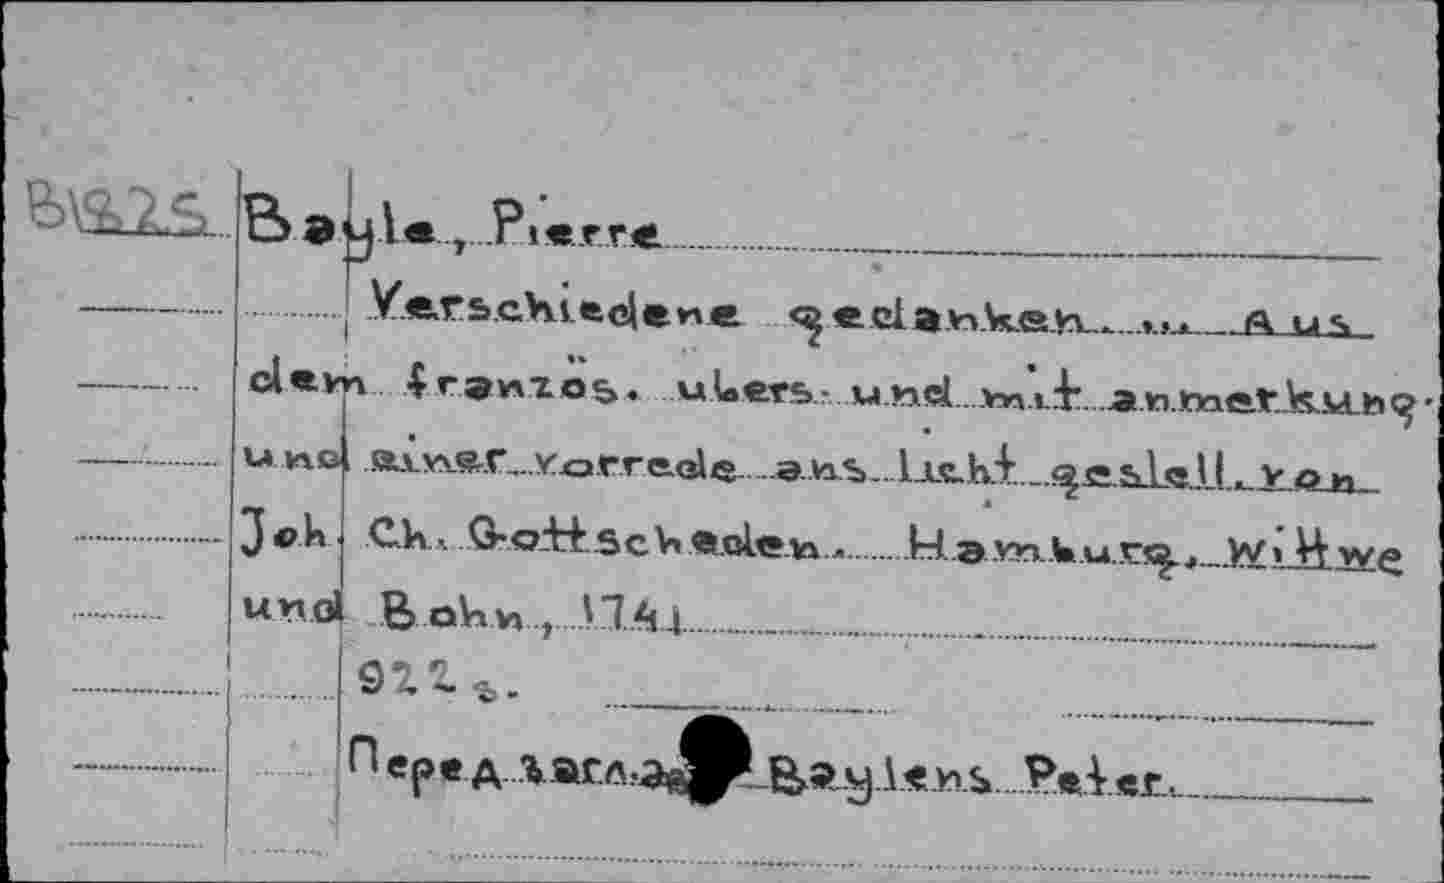 Bayle, Pierre
Verschiedene gedanken. ... Aus
dem französ. ubers. und mit anmerkung.
und einer vorrede ans licht gestell. von
Joh. Ch. Gottscheden. Hamburg, Wittwe
und Bohn, 1741
922 s.
Перед загл. Baylens Peter.